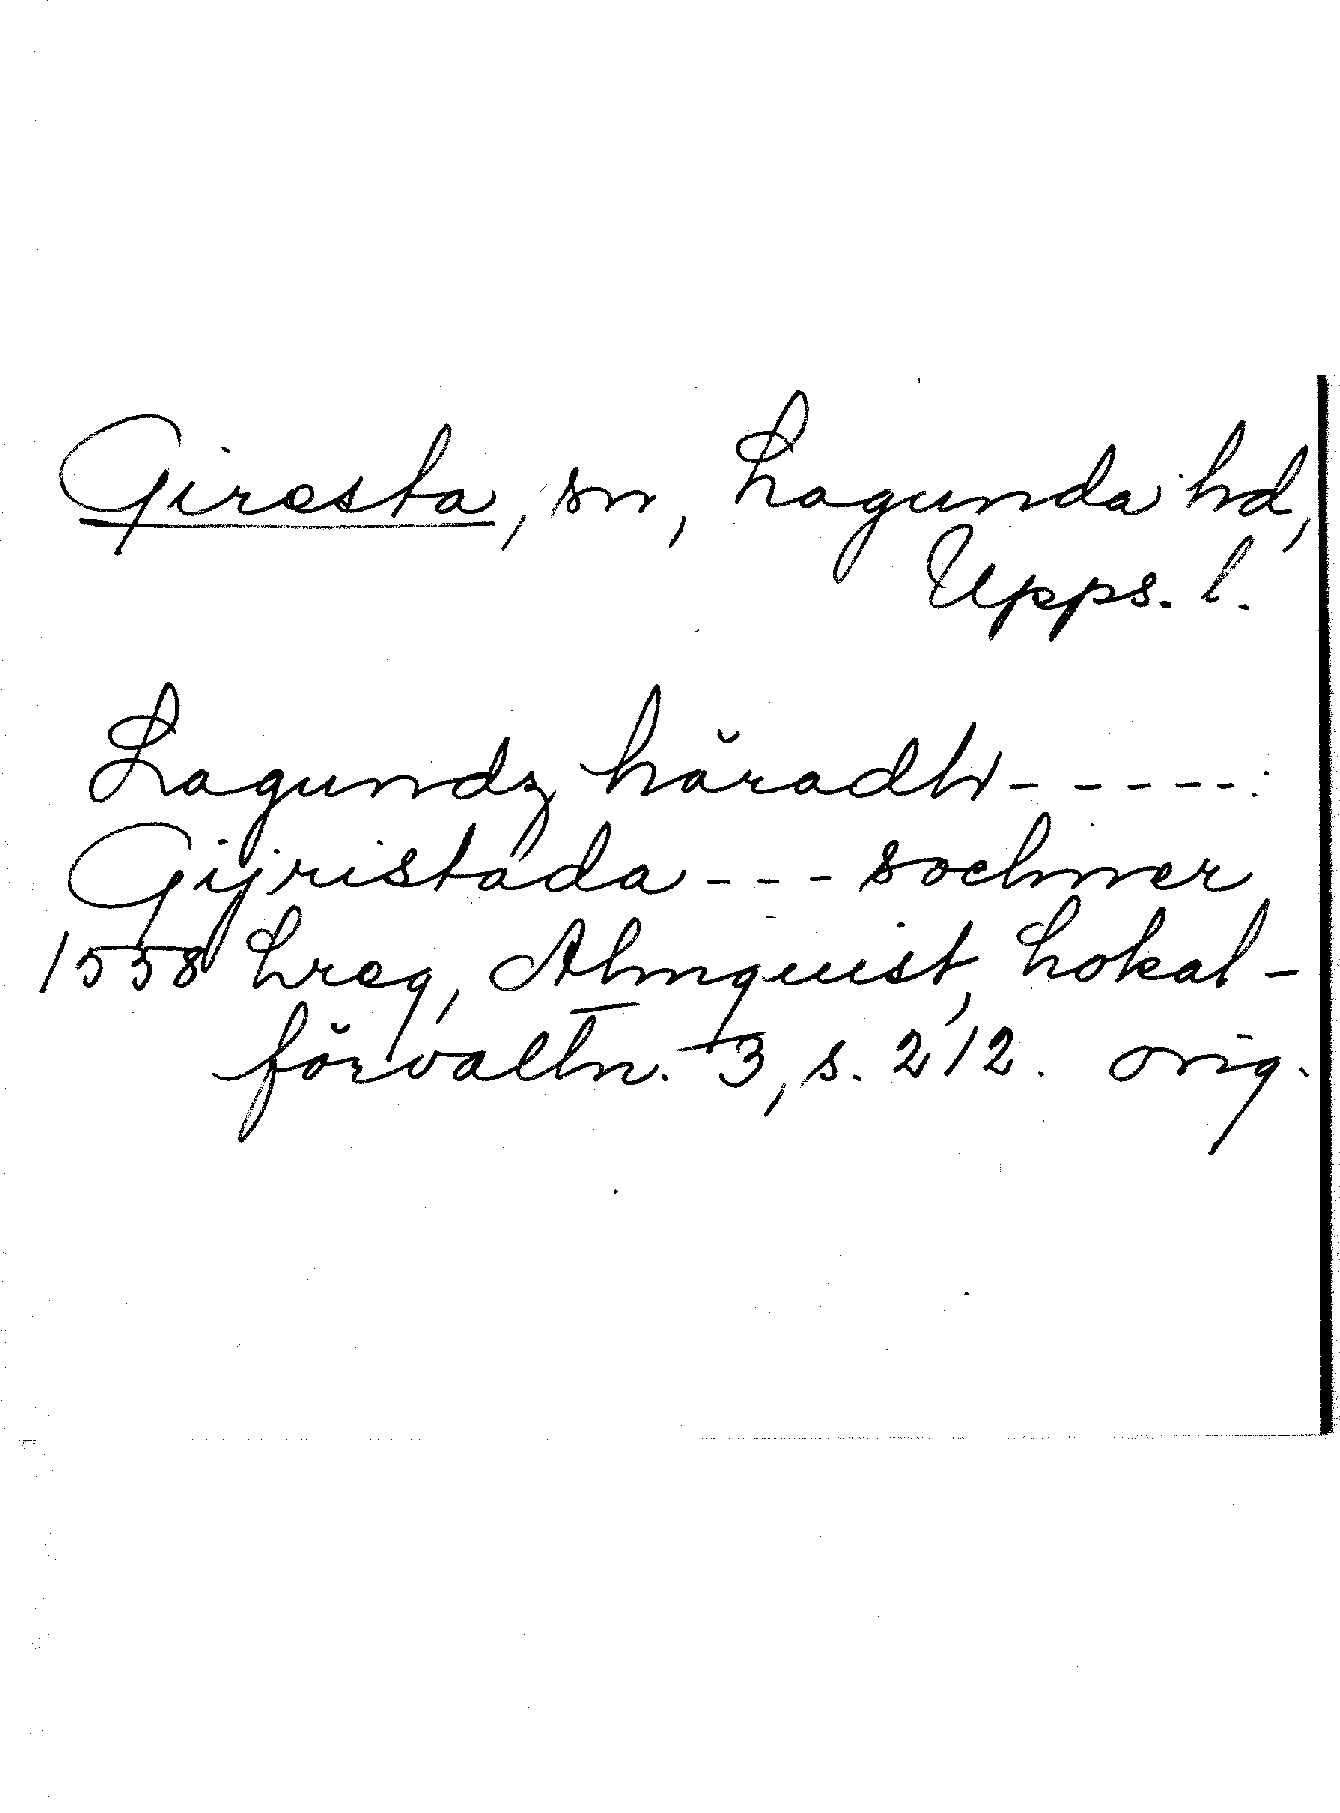 Giresta, sn, Lagunda hd,
Upps. l.
Lagundz häradh - - - - -
Gijristada - - - sochner
1558 Lreg, Almquist, Lokal-
förvaltn. 3, s. 212. orig.